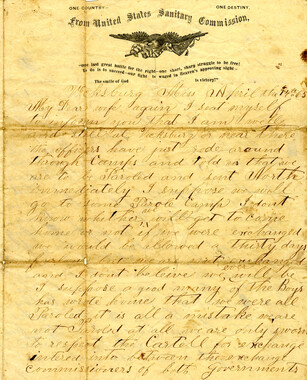 ONE COUNTRY. ONE DESTINY.
From United States Sanitary Commission,
"One last great battle for the right—one short, sharp struggle to be free!
To do is to succeed—our fight is waged in Heaven's approving sight—
The smile of God is victory!"
Vicksburg Miss April 1865
My Dear again I seat myself
to inform you that I am well
and at Vicksburg or near there
the officers have just rode around
through Camps and told us that we
are to be Paroled and sent North
immediately I suppose we will
go to some Parole Camp I don't
know whether we will get to come
home or not if we were exchanged
we would be allowed a thirty days
but we are not exchanged
and I don't believe we will be
I suppose a good many of the Boys
has wrote home that we were all
Paroled it is all a mistake we are
not Paroled at all we are only sworn
to respect the Cartell for exchange
entered into between the exchange
commissioners of both Governments